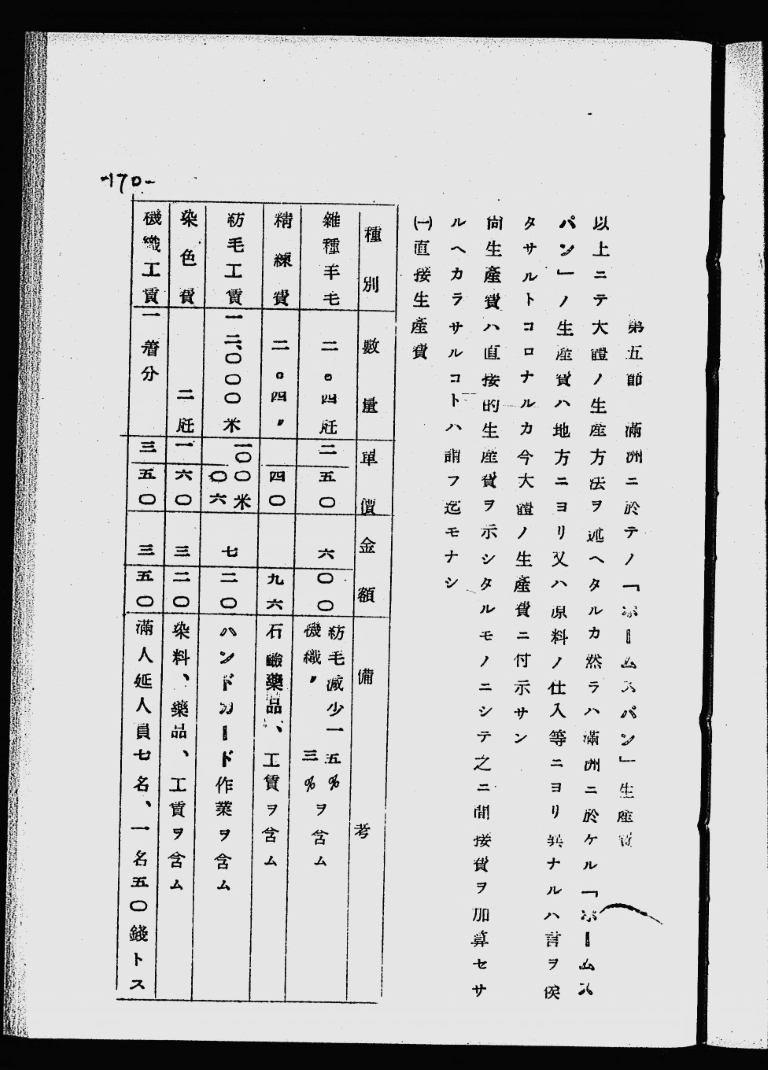 -170-
第五節 滿洲ニ於テノ「ホームスパン」生産費
以上ニテ大體ノ生産方法ヲ述ヘタルカ然ラハ滿洲ニ於ケル「ホームス
パン」ノ生産費ハ地方ニヨリ又ハ原料ノ仕入等ニヨリ異ナルハ言ヲ俟
タサルトコロナルカ今大體ノ生産費ニ付示サン
尚生産費ハ直接的生産費ヲ示シタルモノニシテ之ニ間接費ヲ加算セサ
ルヘカラサルコトハ謂フ迄モナシ
㈠直接生産費
種別 數量 單價 金額 備考
雜種羊毛 二。四瓩 二五〇 六〇〇 紡毛減少一五%ヲ含ム
機織〃 三%
精練費 二。四〃 四〇 九六 石鹼藥品、工賃ヲ含ム
紡毛工賃 一二、〇〇〇米 一〇〇米〇六 七二〇 ハンドカード作業ヲ含ム
染色費 二瓩 一六〇 三二〇 染料、藥品、工賃ヲ含ム
機織工賃 一着分 三五〇 三五〇 滿人延人員七名、一名五〇錢トス